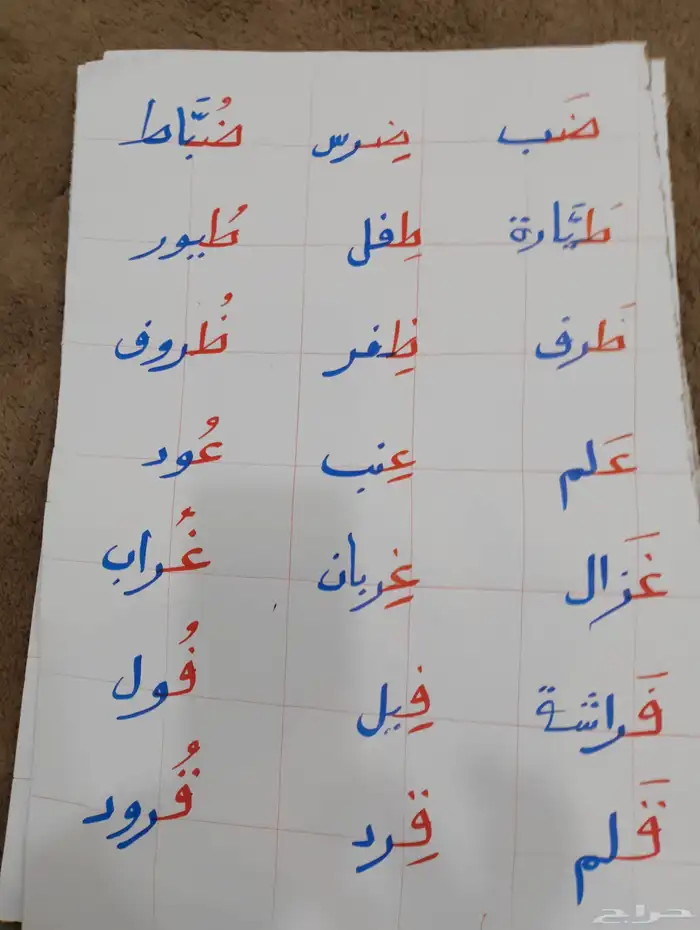 ضَب ضِرس ضُبَّاط
طَيَّارة طِفل طُيور
ظَرف ظِفر ظُروف
عَلم عِنب عُود
غَزال غِربان غُراب
فَراشة فِيل فُول
قَلم قِرد قُرود
حراج